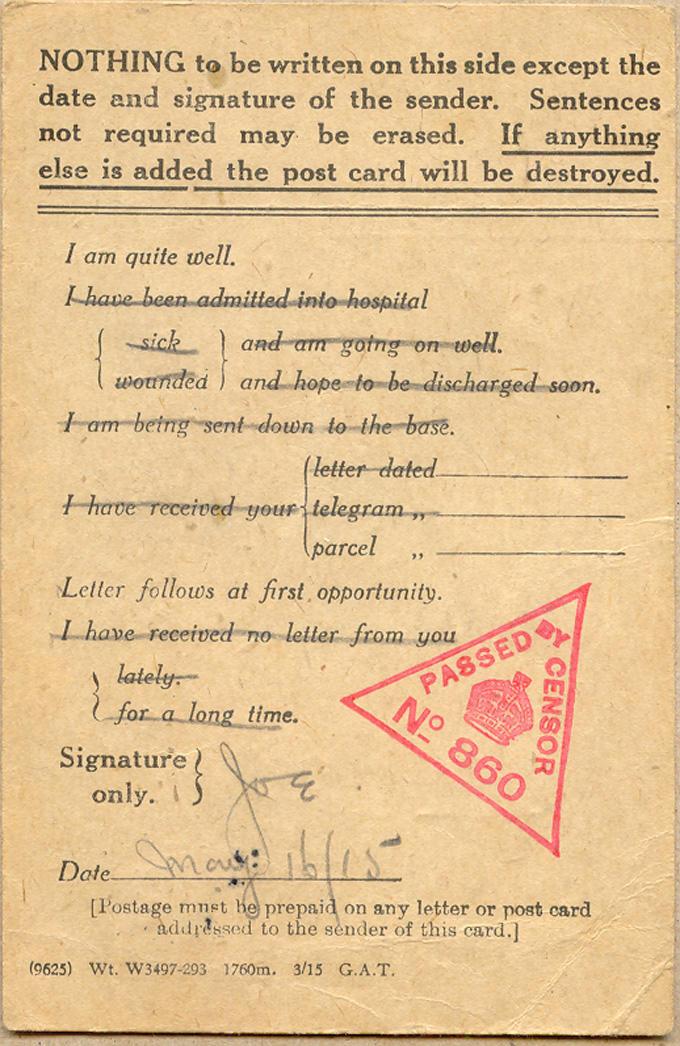 NOTHING to be written on this side except the
date and signature of the sender. Sentences
not required may be erased. If anything
else is added the post card will be destroyed.
I am quite well.
I have been admitted into hospital
sick and am going on well.
wounded and hope to be discharged soon.
I am being sent down to the base.
letter dated
I have received your telegram „
parcel „
Letter follows at first opportunity.
I have received no letter from you
lately.
for a long time.
PASSED BY CENSOR
No 860
Signature
only.
Joe
Date May 16/15
[Postage must be prepaid on any letter or post card
addressed to the sender of this card.]
(9625) Wt. W3497-293 1760m. 3/15 G.A.T.